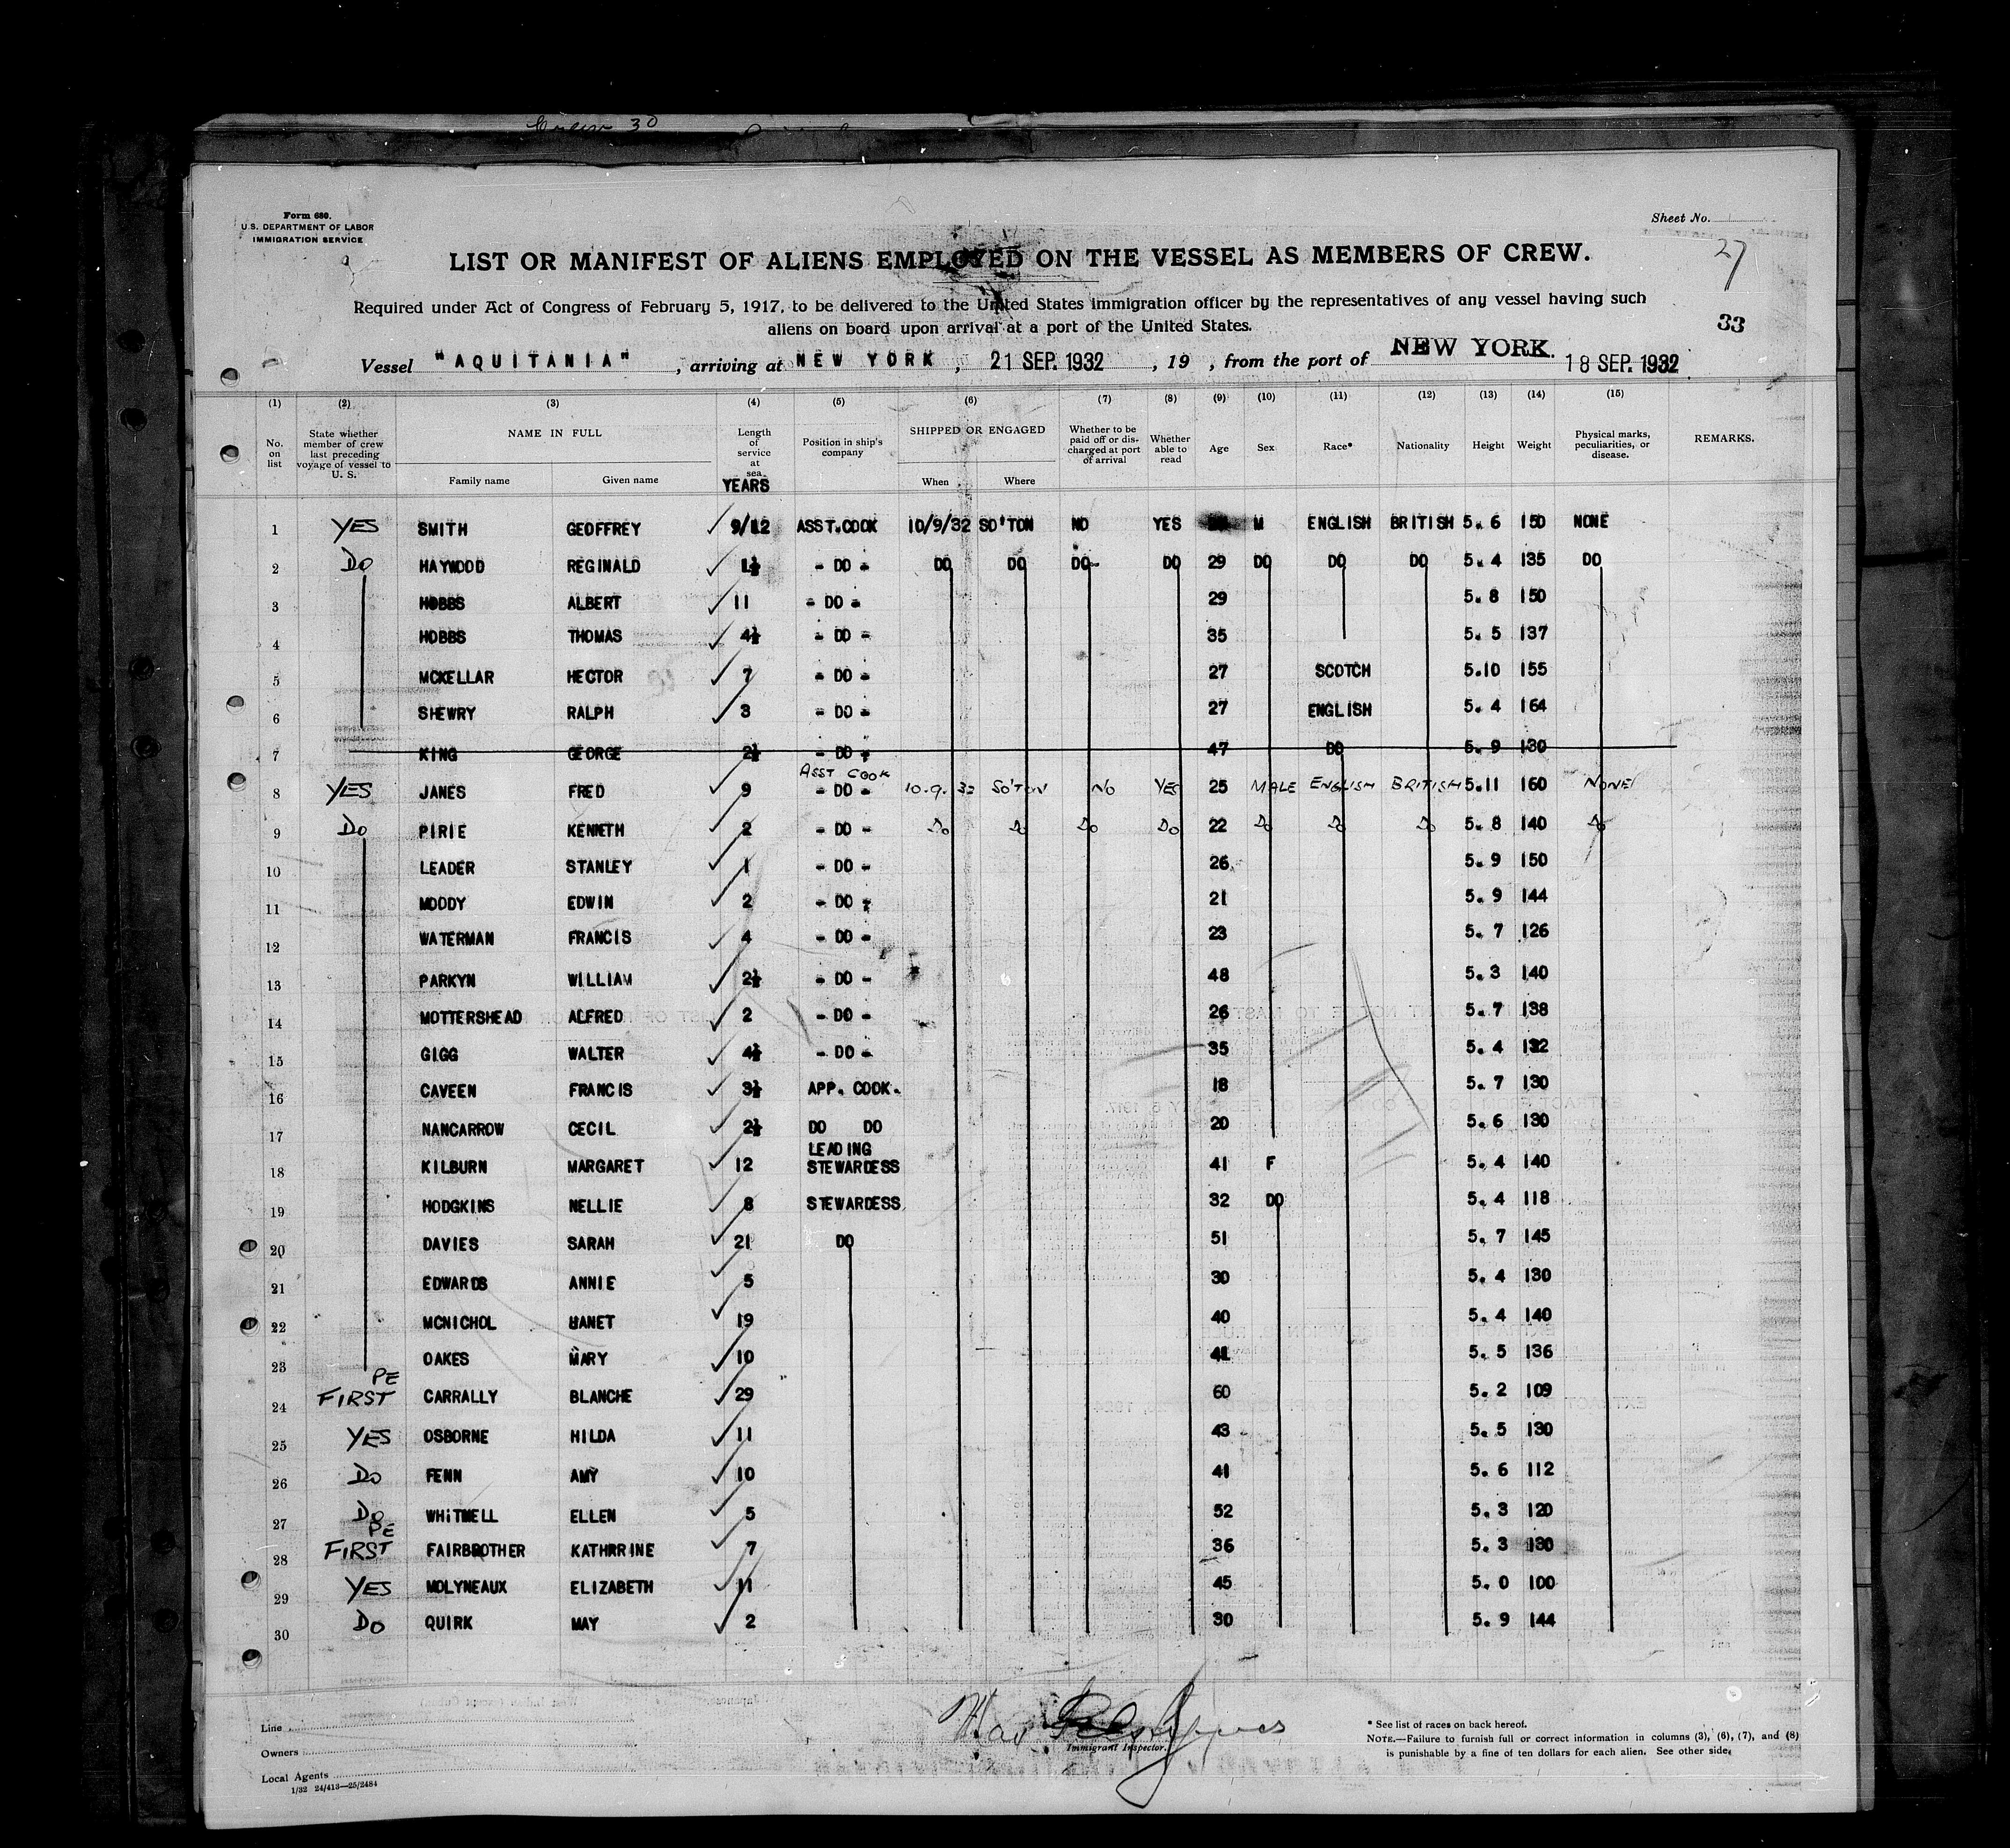 Form 680.
U.S. DEPARTMENT OF LABOR
IMMIGRATION SERVICE
Sheet No.
27
LIST OR MANIFEST OF ALIENS EMPLOYED ON THE VESSEL AS MEMBERS OF CREW.
Required under Act of Congress of February 5, 1917, to be delivered to the United States immigration officer by the representatives of any vessel having such
aliens on board upon arrival at a port of the United States.
33
Vessel "AQUITANIA", arriving at NEW YORK, 21 SEP. 1932, 19 , from the port of NEW YORK. 18 SEP. 1932
(1) (2) (3) (4) (5) (6) (7) (8) (9) (10) (11) (12) (13) (14) (15)
No. on list State whether member of crew last preceding voyage of vessel to U. S. NAME IN FULL Family name Given name Length of service at sea YEARS Position in ship's company SHIPPED OR ENGAGED When Where Whether to be paid off or discharged at port of arrival Whether able to read Age Sex Race* Nationality Height Weight Physical marks, peculiarities, or disease. REMARKS.
1 YES SMITH GEOFFREY 9/12 ASST.COOK 10/9/32 SO'TON NO YES M ENGLISH BRITISH 5. 6 150 NONE
2 Do HAYWOOD REGINALD 1½ - DO - DO DO DO- DO 29 DO DO DO 5. 4 135 DO
3 HOBBS ALBERT 11 - DO - 29 5. 8 150
4 HOBBS THOMAS 4½ - DO - 35 5. 5 137
5 MCKELLAR HECTOR 7 - DO - 27 SCOTCH 5.10 155
6 SHEWRY RALPH 3 - DO - 27 ENGLISH 5. 4 164
7 KING GEORGE 2½ - DO - 47 DO 5. 9 130
ASST COOK
8 YES JANES FRED 9 - DO - 10.9.32 SO'TON NO YES 25 MALE ENGLISH BRITISH 5.11 160 NONE
9 Do PIRIE KENNETH 2 - DO - Do Do Do Do 22 Do Do Do 5. 8 140 Do
10 LEADER STANLEY 1 - DO - 26 5. 9 150
11 MOODY EDWIN 2 - DO - 21 5. 9 144
12 WATERMAN FRANCIS 4 - DO - 23 5. 7 126
13 PARKYN WILLIAM 2½ - DO - 48 5. 3 140
14 MOTTERSHEAD ALFRED 2 - DO - 26 5. 7 138
15 GIGG WALTER 4½ - DO - 35 5. 4 132
16 CAVEEN FRANCIS 3½ APP. COOK. 18 5. 7 130
17 NANCARROW CECIL 2½ DO DO 20 5. 6 130
18 KILBURN MARGARET 12 LEADING STEWARDESS 41 F 5. 4 140
19 HODGKINS NELLIE 8 STEWARDESS 32 DO 5. 4 118
20 DAVIES SARAH 21 DO 51 5. 7 145
21 EDWARDS ANNIE 5 30 5. 4 130
22 MCNICHOL 19 40 5. 4 140
23 OAKES MARY 10 41 5. 5 136
24 PE FIRST CARRALLY BLANCHE 29 60 5. 2 109
25 YES OSBORNE HILDA 11 43 5. 5 130
26 Do FENN AMY 10 41 5. 6 112
27 Do WHITWELL ELLEN 5 52 5. 3 120
28 PE FIRST FAIRBROTHER KATHRRINE 7 36 5. 3 130
29 YES MOLYNEAUX ELIZABETH 11 45 5. 0 100
30 Do QUIRK MAY 2 30 5. 9 144
Line
Owners
Local Agents
1/32 24/413—25/2484
Immigrant Inspector.
* See list of races on back hereof.
NOTE.—Failure to furnish full or correct information in columns (3), (6), (7), and (8)
is punishable by a fine of ten dollars for each alien. See other side.